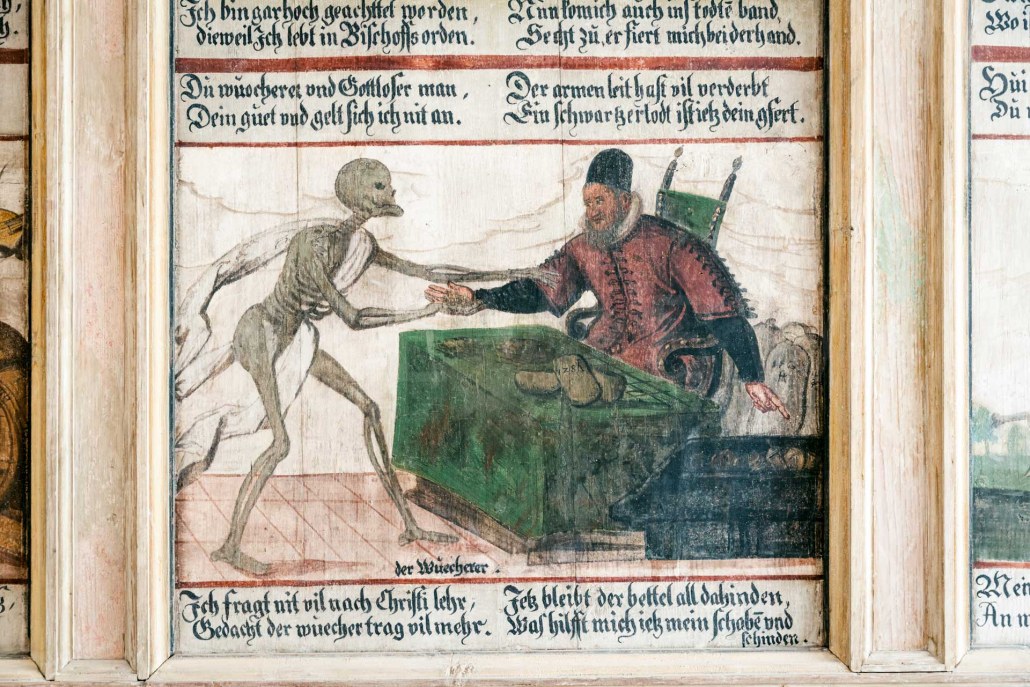 Ich bin gar hoch geachttet worden,
dieweil Ich lebt in Bischoffs orden.
Nun kom ich auch ins todte band,
Secht zu, er fiert mich bei der hand.
Du wuocherer und Gottloser man,
Dein guet vnd gelt sich ich nit an.
Der armen leit hast vil verderbt
Ein schwartzer todt ist ietz dein gfert.
der Wuecherer.
Ich fragt nit vil nach Christi lehr,
Gedacht der wuecher trag vil mehr.
Jetz bleibt der bettel all dahinden,
Was hilfft mich ietz mein schobē vnd
schinden.
Wo
Du
An